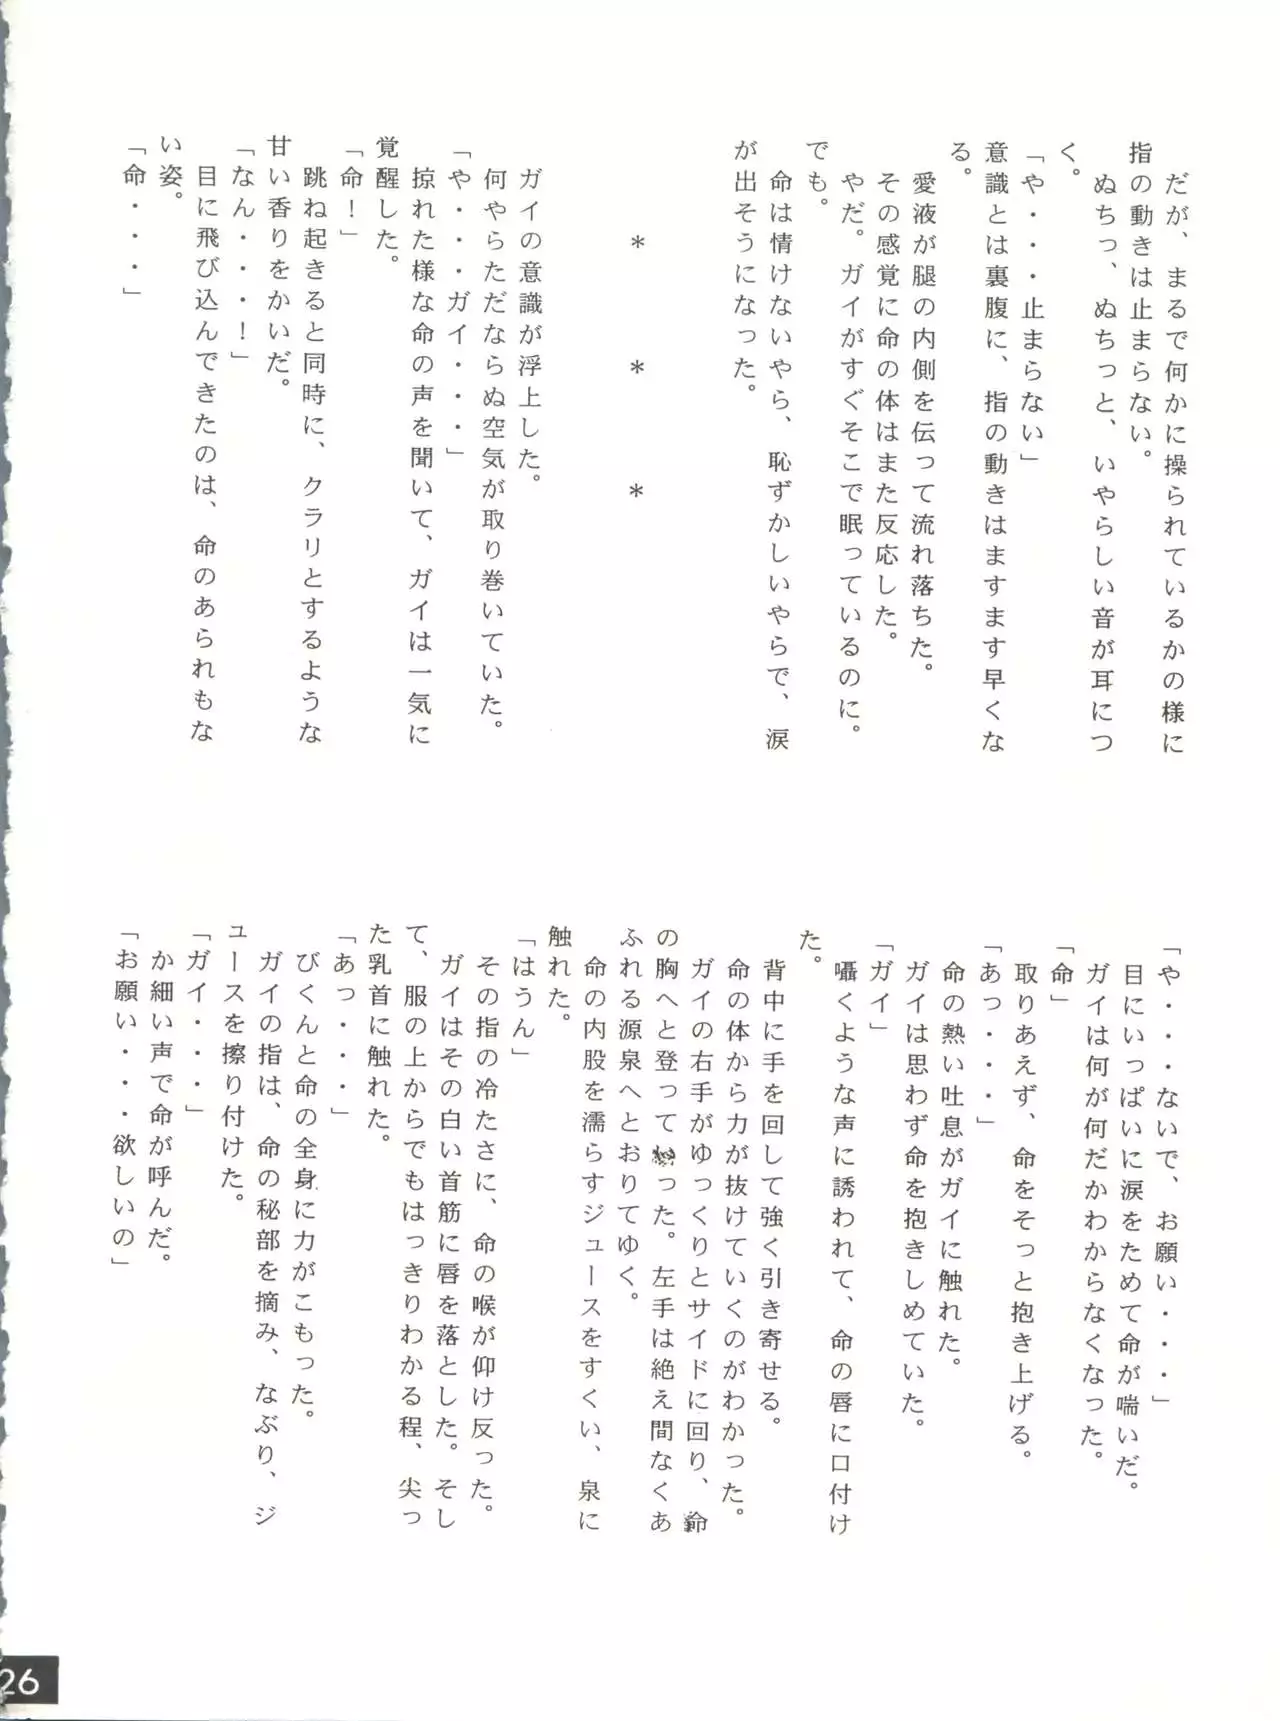 だが、まるで何かに操られているかの様に
指の動きは止まらない。
ぬちっ、ぬちっと、いやらしい音が耳につ
く。
「や・・・止まらない」
意識とは裏腹に、指の動きはますます早くな
る。
愛液が腿の内側を伝って流れ落ちた。
その感覚に命の体はまた反応した。
やだ。ガイがすぐそこで眠っているのに。
でも。
命は情けないやら、恥ずかしいやらで、涙
が出そうになった。
＊　＊　＊
ガイの意識が浮上した。
何やらただならぬ空気が取り巻いていた。
「や・・・ガイ・・・」
掠れた様な命の声を聞いて、ガイは一気に
覚醒した。
「命！」
跳ね起きると同時に、クラリとするような
甘い香りをかいだ。
「なん・・・！」
目に飛び込んできたのは、命のあられもな
い姿。
「命・・・」
「や・・・ないで、お願い・・・」
目にいっぱいに涙をためて命が喘いだ。
ガイは何が何だかわからなくなった。
「命」
取りあえず、命をそっと抱き上げる。
「あっ・・・」
命の熱い吐息がガイに触れた。
ガイは思わず命を抱きしめていた。
「ガイ」
囁くような声に誘われて、命の唇に口付け
た。
背中に手を回して強く引き寄せる。
命の体から力が抜けていくのがわかった。
ガイの右手がゆっくりとサイドに回り、命
の胸へと登ってった。左手は絶え間なくあ
ふれる源泉へとおりてゆく。
命の内股を濡らすジュースをすくい、泉に
触れた。
「はうん」
その指の冷たさに、命の喉が仰け反った。
ガイはその白い首筋に唇を落とした。そし
て、服の上からでもはっきりわかる程、尖っ
た乳首に触れた。
「あっ・・・」
びくんと命の全身に力がこもった。
ガイの指は、命の秘部を摘み、なぶり、ジ
ュースを擦り付けた。
「ガイ・・・」
か細い声で命が呼んだ。
「お願い・・・欲しいの」
26